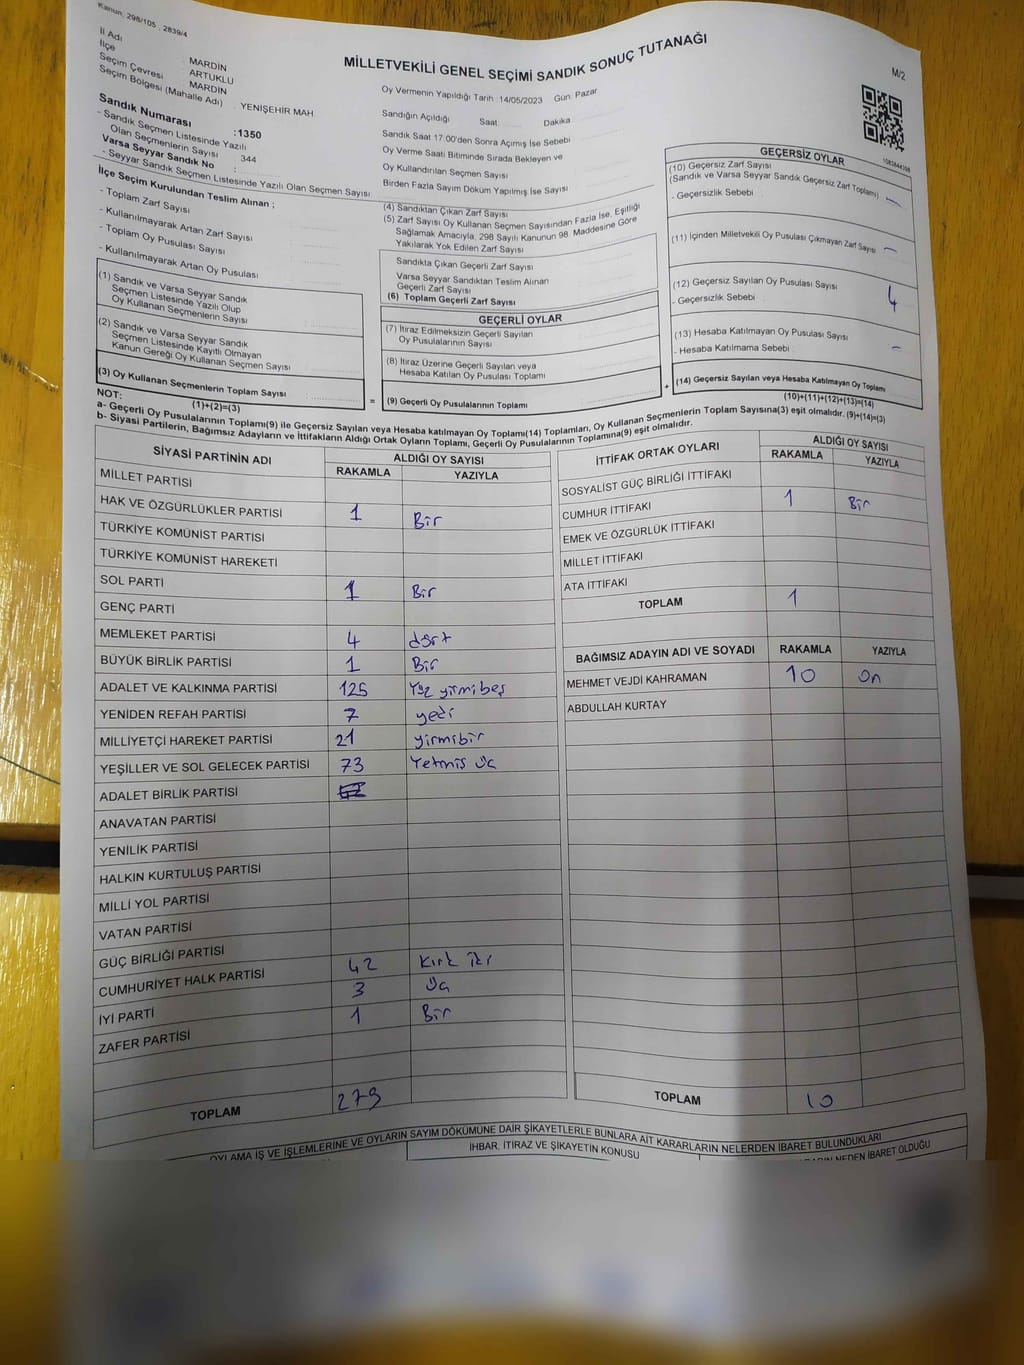 Kanun, 298/105 , 2839/4
MİLLETVEKİLİ GENEL SEÇİMİ SANDIK SONUÇ TUTANAĞI
M/2
İl Adı MARDİN
İlçe ARTUKLU
Seçim Çevresi MARDİN
Seçim Bölgesi (Mahalle Adı) : YENİŞEHİR MAH
Sandık Numarası :1350
- Sandık Seçmen Listesinde Yazılı
Olan Seçmenlerin Sayısı : 344
Varsa Seyyar Sandık No :
- Seyyar Sandık Seçmen Listesinde Yazılı Olan Seçmen Sayısı :
Oy Vermenin Yapıldığı Tarih 14/05/2023 Gün: Pazar
Sandığın Açıldığı Saat: Dakika
Sandık Saat 17:00'den Sonra Açımış İse Sebebi
Oy Verme Saati Bitiminde Sırada Bekleyen ve
Oy Kullandırılan Seçmen Sayısı
Birden Fazla Sayım Döküm Yapılmış İse Sayısı
İlçe Seçim Kurulundan Teslim Alınan ;
- Toplam Zarf Sayısı
- Kullanılmayarak Artan Zarf Sayısı
- Toplam Oy Pusulası Sayısı
- Kullanılmayarak Artan Oy Pusulası
(1) Sandık ve Varsa Seyyar Sandık
Seçmen Listesinde Yazılı Olup
Oy Kullanan Seçmenlerin Sayısı
(2) Sandık ve Varsa Seyyar Sandık
Seçmen Listesinde Kayıtlı Olmayan
Kanun Gereği Oy Kullanan Seçmen Sayısı
(3) Oy Kullanan Seçmenlerin Toplam Sayısı
(1)+(2)=(3)
(4) Sandıktan Çıkan Zarf Sayısı
(5) Zarf Sayısı Oy Kullanan Seçmen Sayısından Fazla İse, Eşitliği
Sağlamak Amacıyla, 298 Sayılı Kanunun 98. Maddesine Göre
Yakılarak Yok Edilen Zarf Sayısı
Sandıkta Çıkan Geçerli Zarf Sayısı
Varsa Seyyar Sandıktan Teslim Alınan
Geçerli Zarf Sayısı
(6) Toplam Geçerli Zarf Sayısı
GEÇERLİ OYLAR
(7) İtiraz Edilmeksizin Geçerli Sayılan
Oy Pusulalarının Sayısı
(8) İtiraz Üzerine Geçerli Sayılan veya
Hesaba Katılan Oy Pusulası Toplamı
= (9) Geçerli Oy Pusulalarının Toplamı +
GEÇERSİZ OYLAR
(10) Geçersiz Zarf Sayısı
(Sandık ve Varsa Seyyar Sandık Geçersiz Zarf Toplamı)
- Geçersizlik Sebebi : –
(11) İçinden Milletvekili Oy Pusulası Çıkmayan Zarf Sayısı –
(12) Geçersiz Sayılan Oy Pusulası Sayısı 4
- Geçersizlik Sebebi :
(13) Hesaba Katılmayan Oy Pusulası Sayısı –
- Hesaba Katılmama Sebebi :
(14) Geçersiz Sayılan veya Hesaba Katılmayan Oy Toplamı
(10)+(11)+(12)+(13)=(14)
NOT:
a- Geçerli Oy Pusulalarının Toplamı(9) ile Geçersiz Sayılan veya Hesaba Katılmayan Oy Toplamı(14) Toplamları, Oy Kullanan Seçmenlerin Toplam Sayısına(3) eşit olmalıdır. (9)+(14)=(3)
b- Siyasi Partilerin, Bağımsız Adayların ve İttifakların Aldığı Ortak Oyların Toplamı, Geçerli Oy Pusulalarının Toplamına(9) eşit olmalıdır.
SİYASİ PARTİNİN ADI ALDIĞI OY SAYISI
RAKAMLA YAZIYLA
MİLLET PARTİSİ
HAK VE ÖZGÜRLÜKLER PARTİSİ 1 Bir
TÜRKİYE KOMÜNİST PARTİSİ
TÜRKİYE KOMÜNİST HAREKETİ
SOL PARTİ 1 Bir
GENÇ PARTİ
MEMLEKET PARTİSİ 4 dört
BÜYÜK BİRLİK PARTİSİ 1 Bir
ADALET VE KALKINMA PARTİSİ 125 Yüz yirmibeş
YENİDEN REFAH PARTİSİ 7 yedi
MİLLİYETÇİ HAREKET PARTİSİ 21 yirmibir
YEŞİLLER VE SOL GELECEK PARTİSİ 73 Yetmiş üç
ADALET BİRLİK PARTİSİ
ANAVATAN PARTİSİ
YENİLİK PARTİSİ
HALKIN KURTULUŞ PARTİSİ
MİLLİ YOL PARTİSİ
VATAN PARTİSİ
GÜÇ BİRLİĞİ PARTİSİ
CUMHURİYET HALK PARTİSİ 42 Kırk iki
İYİ PARTİ 3 üç
ZAFER PARTİSİ 1 Bir
TOPLAM 279
İTTİFAK ORTAK OYLARI ALDIĞI OY SAYISI
RAKAMLA YAZIYLA
SOSYALİST GÜÇ BİRLİĞİ İTTİFAKI
CUMHUR İTTİFAKI 1 Bir
EMEK VE ÖZGÜRLÜK İTTİFAKI
MİLLET İTTİFAKI
ATA İTTİFAKI
TOPLAM 1
BAĞIMSIZ ADAYIN ADI VE SOYADI RAKAMLA YAZIYLA
MEHMET VEJDİ KAHRAMAN 10 On
ABDULLAH KURTAY
TOPLAM 10
OYLAMA İŞ VE İŞLEMLERİNE VE OYLARIN SAYIM DÖKÜMÜNE DAİR ŞİKAYETLERLE BUNLARA AİT KARARLARIN NELERDEN İBARET BULUNDUKLARI
İHBAR, İTİRAZ VE ŞİKAYETİN KONUSU
NEDEN İBARET OLDUĞU